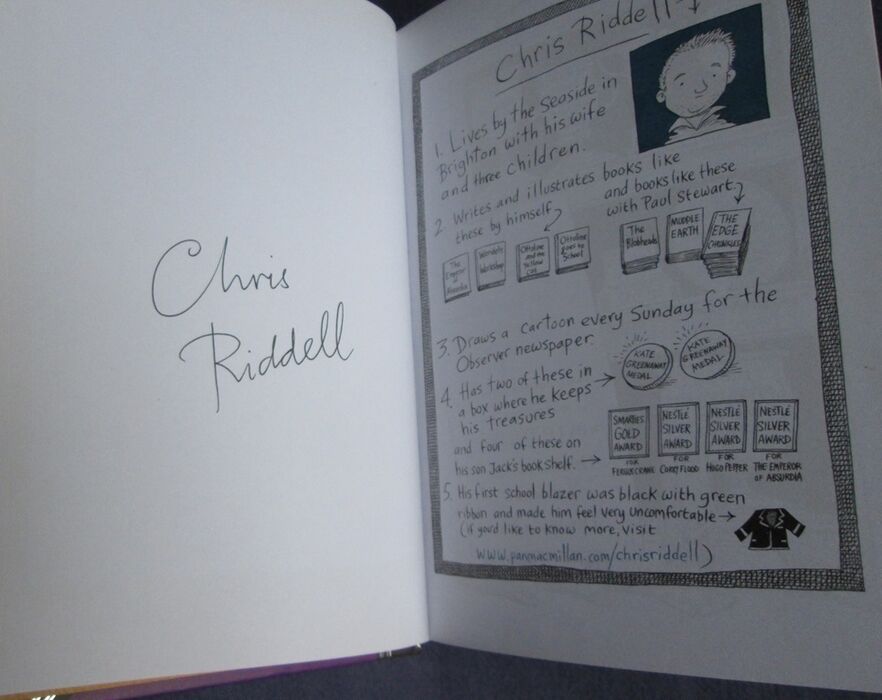 Chris
Riddell
Chris Riddell
1. Lives by the Seaside in
Brighton with his wife
and three children.
2. Writes and illustrates books like
these by himself
and books like these
with Paul Stewart.
The
Emperor
of
Absurdia
Wendel's
Workshop
Ottoline
and the
Yellow
Cat
Ottoline
goes to
School
The
Blobheads
MUDDLE
EARTH
THE
EDGE
CHRONICLES
3. Draws a cartoon every Sunday for the
Observer newspaper.
4. Has two of these in
a box where he keeps
his treasures
KATE
GREENAWAY
MEDAL
KATE
GREENAWAY
MEDAL
and four of these on
his son Jack's book shelf.
SMARTIES
GOLD
AWARD
FOR
FERGUS CRANE
NESTLÉ
SILVER
AWARD
FOR
CORBY FLOOD
NESTLÉ
SILVER
AWARD
FOR
HUGO PEPPER
NESTLÉ
SILVER
AWARD
FOR
THE EMPEROR
OF ABSURDIA
5. His first school blazer was black with green
ribbon and made him feel very uncomfortable
(if you'd like to know more, visit
www.panmacmillan.com/chrisriddell)